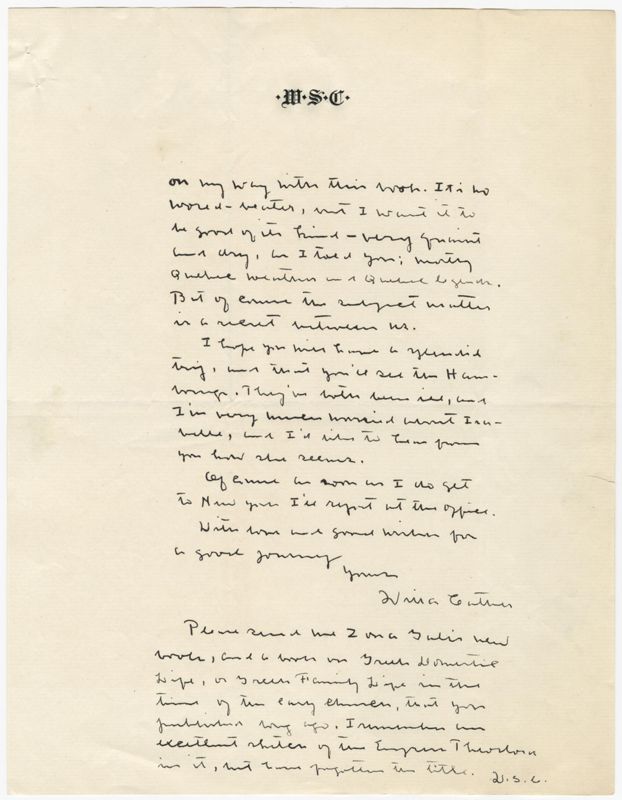 ·W·S·C·
on my way with this book. It's no
world-beater, but I want it to
be good of its kind — very quaint
and dry, as I told you; mostly
Quebec weather and Quebec legends.
But of course the subject matter
is a secret between us.
I hope you will have a splendid
trip, and that you'll see the Ham-
bourgs. They've both been ill, and
I'm very much worried about Isa-
belle, and I'd like to hear from
you how she seems.
Of course as soon as I do get
to New York I'll report at the office.
With love and good wishes for
a good journey
Yours
Willa Cather
Please send me Zona Gale's new
book, and a book on Greek Domestic
Life, or Greek Family Life in the
time of the early church, that you
published long ago. I remember an
excellent sketch of the Empress Theodora
in it, but have forgotten the title. W.S.C.